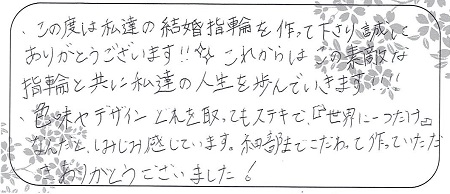 ・この度は私達の結婚指輪を作って下さり誠に
ありがとうございます!!☆これからはこの素敵な
指輪と共に私達の人生を歩んでいきます!!!
・色味やデザインどれを取ってもステキで、『世界に一つだけ』
なんだと、しみじみ感じています。細部までこだわって作っていただ
きありがとうございました!